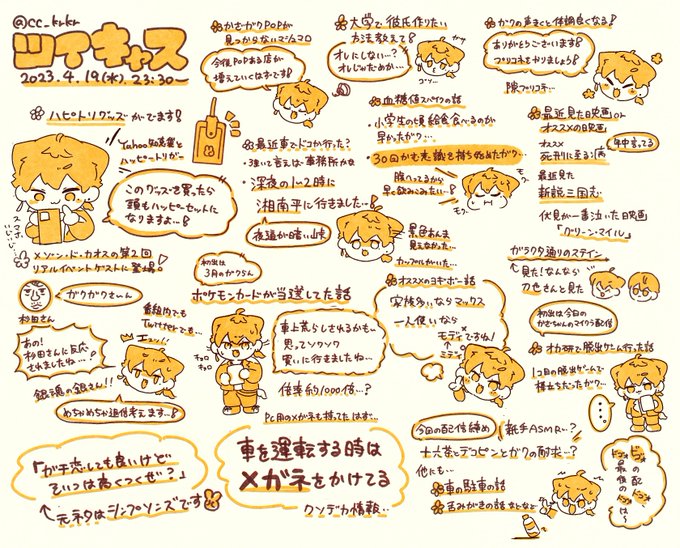 @cc_krkr
ツイキャス
2023.4.19(水).23:30~
ハピトリグッズがでます!
Yahooが知恵と
ハッピートリガー
このグッズを買ったら
頭もハッピーセットに
なりますよ…!
スマホ
いじいじ
メゾン・ド・カオスの第2回
リアルイベントゲストに登場!
ガクガクさぃん
杉田さん
番組内でも
Twitterでも…
あの!
杉田さんに反応
されましたね…!
エッッ!!
銀魂の銀さん!!
めちゃめちゃ返信考えます…!
「ガチ恋しても良いけど
そいつは高くつくぜ?」
元ネタはシンプソンズです
かさガクPOPが
見つからないマシュマロ
今後POPある店が
増えていくはずです!
最近車でドコか行った?
・強いて言えば事務所かな
・深夜の1~2時に
湘南平に行きました…!
夜道が暗い山奥
景色あんま
見えなかった…
カップルがいた…
初出は
3月のガクらん
ポケモンカードが当選してた話
車上荒らしされるかも…
思ってソワソワ
買いに行きましたね…
チョロ
チョロ
倍率約1000倍…?
PC用のメガネも持ってたはず…
車を運転する時は
メガネをかけてる
クソデカ情報…
大学で彼氏作りたい
方法教えて!
オレにしない…?
オレじゃだめか…
血糖値スパイクの話
・小学生の頃給食食べるのが
早かったガク…
・30回かむ意識を持ち始めたガク…
腹へってるから
早く飲みこみたい…!
モグ
モグ
オススメのヨギボーの話
家族ぐらいならマックス
一人使いなら
モディですね!
ミディ
今回の配信締め
新手ASMR…?
十六茶とデコピンとガクの耐久…?
他にも…
車の駐車の話
歯みがきの話などなど
ガクの声きくと体調良くなる!
ありがとうございます!
プリコネもやりましょう!
隙プリコネ…
最近見た映画or
オススメの映画
オススメ
死刑に至る病
年中言ってる
最近見た
新説三国志
伏見が一番泣いた映画
「グリーン・マイル」
ガラクタ通りのステイン
見た!なんなら
刀也さんと見た
初出は今日の
かさちゃんのマイクラ配信
オカ研で脱出ゲーム行った話
1コ目の脱出ゲームで
棒立ちだったガク…